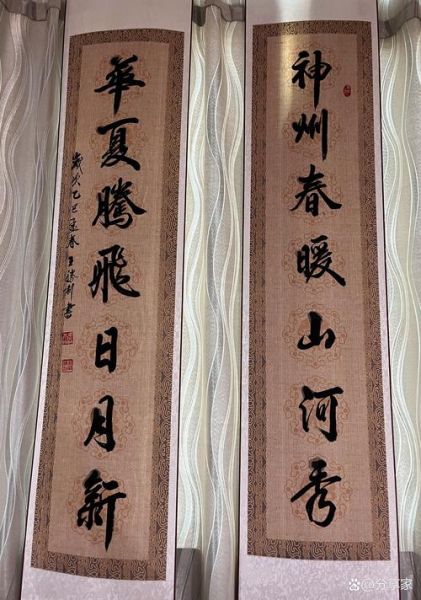 神州春暖山河秀
華夏騰飛日月新
歲次乙巳逢春王勝利書
@分享家